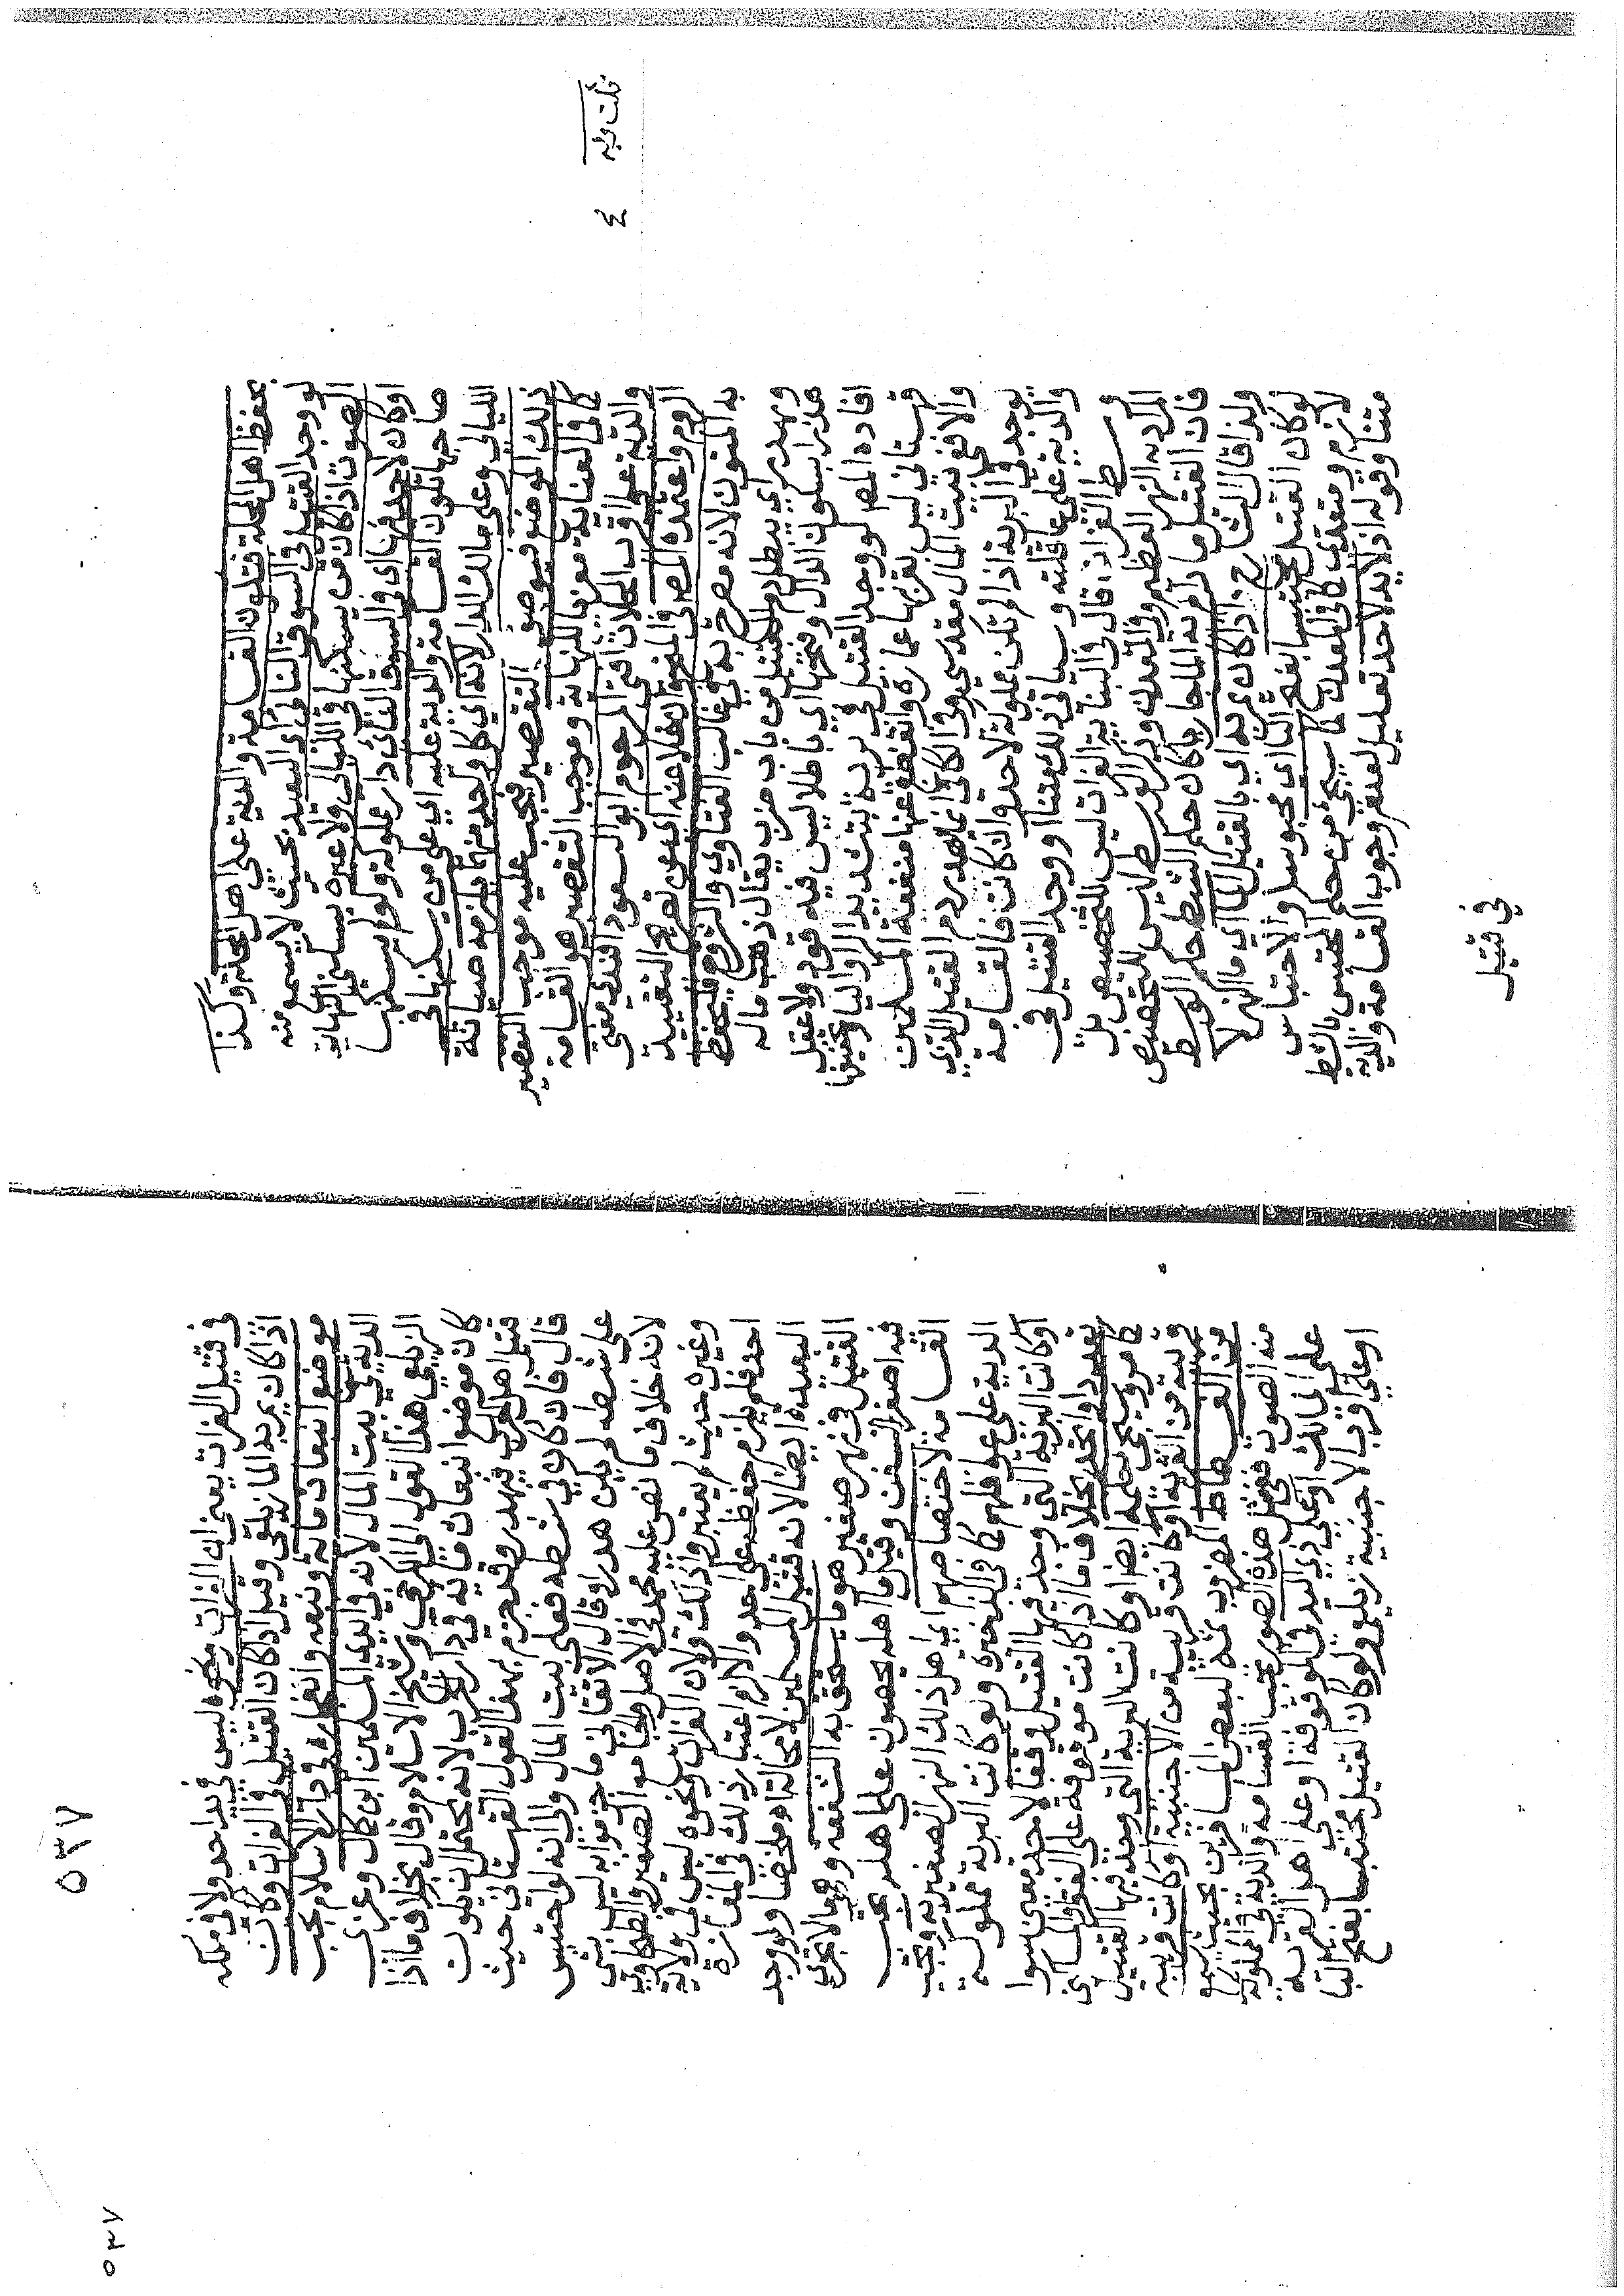 قلت وفيه
٤
بحفظ اهل المحلة فتكون القسامة والدية على اهل المحلة وكذا
لو وجد القتيل في السوق النائي اي البعيد بحيث لا يسمع منه
الصوت اذا كان من يسكنها في الليالي ولا عبرة بسكنى النهار
او كان لاحد فيها اي في السوق النائي دار مملوكة ولو لم يسكنها
صاحبها تكون القسامة والدية عليه اي على من يسكنها في
الليالي وعلى مالك الدار لانه اي كل واحد منهما يلزمه صيانة
ذلك الموضع فيوصف بالتقصير فيجب عليه موجب التقصير
كما في العناية معزيا للنهاية وموجب التقصير هو القسامة
والدية على اقرب المحلات افتى المرحوم ابو السعود افندي مفتي
الروم واعتمده المص في المنح وان خلا عنه اي عن تصريح التقييد
به المتون لانه مصرح به في غالب الفتاوي والشروح فليحفظ
ويهدر اي يبطل دم القتيل من باب ضرب يقال ذهب ماله
هدرا بسكون الدال وفتحها اي باطلا ليس فيه قود ولا عقل
افاده المص لو وجد القتيل في برية بتشديد الراء والياء وتخفيفها
قهستاني ليس بقربها عمارة وانقطع عنها منفعة المسلمين
والا ففي بيت المال مقدسي وفي الكافي انما يهدر دم القتيل الذي
يوجد في البرية اذا لم تكن مملوكة لاحد وان كانت فالقسامة
والدية على عاقلته وسياتي ذلك متنا او وجد القتيل في
وسط الفرات قال في البناية الفرات ليس للتخصيص بل
المراد به النهر العظيم وفي المعدن وذكر الوسط ليس للتخصيص
فان القتيل ما دام به الماء جاريا كان حكم الشط حكم الوسط
ولذا قال الشارح اذا كان يمر به اي بالقتيل الماء اي ماء النهر لا
لو كان القتيل محتبسا بفتح الباء اي محبوسا والاحتباس
لازم ومتعدي كما في المعدن لما سيجيء من حكم المحتبس بالشط
متنا وقوله اذ لا يد لاحد تعليل لعدم وجوب القسامة والدية
في قتيل
٥٣٧
في قتيل الفرات يعني ان الفرات ونحوه ليس في يد احد ولا في ملكه
اذا كان يمر به الماء زيلعي وقيل اذا كان القتيل في الفرات وكان
موضع انبعاث مائه ونبعه وانفجاره في دار الاسلام تجب
الدية في بيت المال لانه في ايدي المسلمين ابن كمال وعزى
الزيلعي هذا القول الى الكرخي وشيخ الاسلام وقال بخلاف ما اذا
كان موضع انبعاث مائه في دار الحرب لانه يحتمل ان يكون
قتيل اهل الحرب فيهدر وقد جزم بهذا القول القهستاني حيث
قال فان كان في شطه فعلى بيت المال والى انه لو احتبس
على شطه لم يكن هدرا وقال الاتقاني ما جزموا به ليس بشي
لانه خلاف ما نص عليه محمد في الاصل والجامع الصغير والطحاوي
وغيره حيث لم يعتبروا ذلك ولان الفرات ونحوه ليس في ولاية
احد فلم يلزم حفظه على احد والا لزم اعتبار ذلك في المفازة
البعيدة ايضا لانه قتيل المسلمين لا محالة اه ملخصا ولو وجد
القتيل في نهر صغير هو ما يستحق به الشفعة وهو ما لا تجري
فيه اصغر السفن وقيل ما اهله يحصون على اهله تجب
القسامة لاختصاصهم اي اهل ذلك النهر الصغير به وتجب
الدية على عواقلهم كما في الذخيرة ولو كانت البرية مملوكة
او كانت البرية التي وجد فيها القتيل وقفا لاحد يعني سوا
تعدد او اتحد بخلاف ما اذا كانت موقوفة على الفقرا والمساكين
كما مر ويجي حكمه ايضا او كانت البرية التي وجد فيها القتيل قريبة
قريبة من القرية او كانت قريبة من الاجنبية او كانت قريبة
من الفسطاط المضروب ثمة لبعض المسافرين بحيث يسمع
منه الصوت ففي هذه الصور تجب القسامة والدية في المملوكة
على المالك او على ذي اليد في الموقوفة او على اهل القرية
او على اقرب الاجنبية زيلعي ولو كان القتيل محتبسا بفتح الباء
٥٣٧